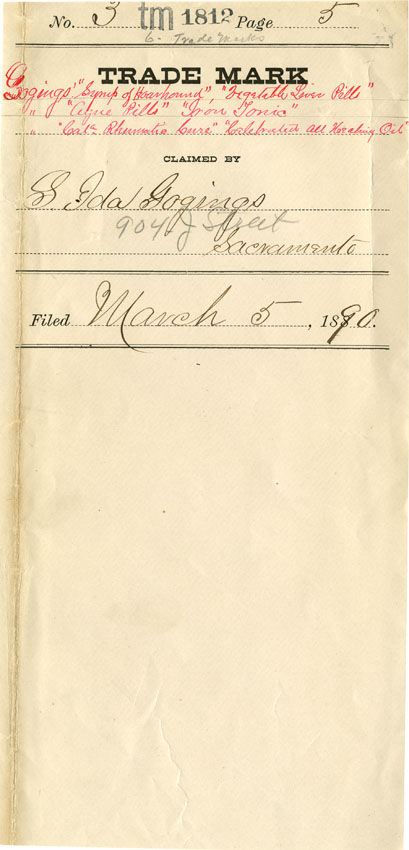 No. 3 tm 1812 Page 5
6. Trade Marks
TRADE MARK
Gogings' "Syrup of Hoarhound", "Vegetable Liver Pills"
" "Ague Pills" "Iron Tonic"
" "Cala Rheumatic Cure" "Celebrated All Healing Oil"
CLAIMED BY
S. Ida Gogings
904 J Street
Sacramento
Filed March 5, 1890.